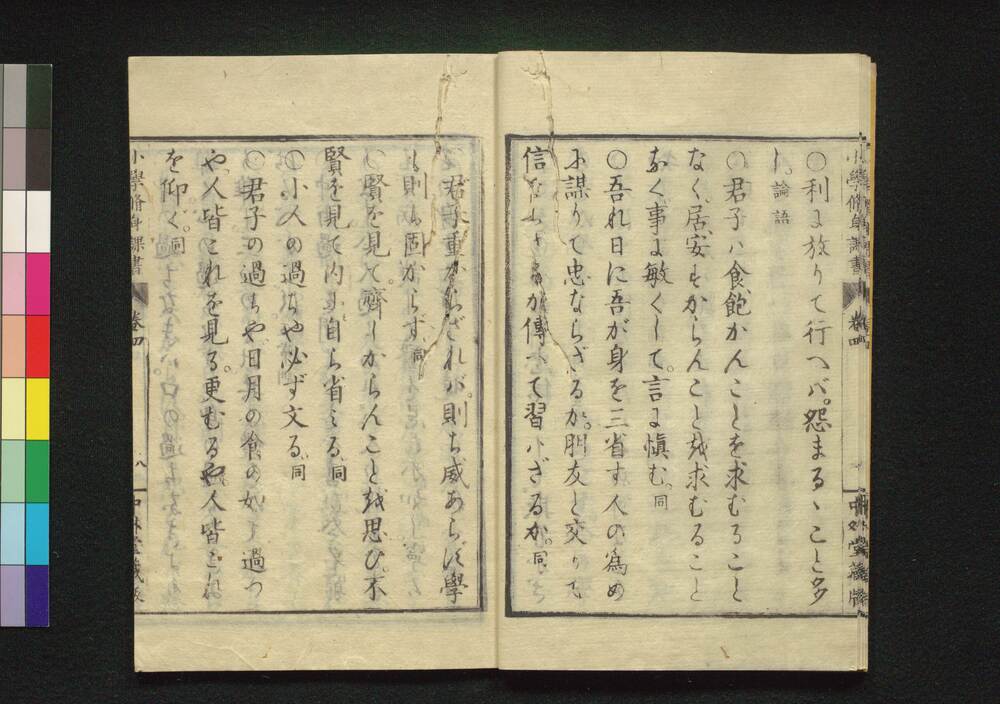 ○利に放りて行へバ。怨まるゝこと多
し。論語
○君子ハ食飽かんことを求むること
なく。居安すからんことを求むること
なく。事に敏くして。言に慎む。同
○吾れ日に吾が身を三省す人の為め
に謀りて忠ならざるか。朋友と交りて
信ならざるか傳へて習ハざるか。同
小學脩身課書 卷四
中外堂藏版
○君子重からざれバ。則ち威あらず學
も則ち固からず。同
○賢を見て。齊しからんことを思ひ。不
賢を見て内に自ら省みる。同
○小人の過ちや必ず文る。同
○君子の過ちや日月の食の如し過つ
や。人皆これを見る。更むるや人皆これ
を仰ぐ。同
小學脩身課書 卷四 八